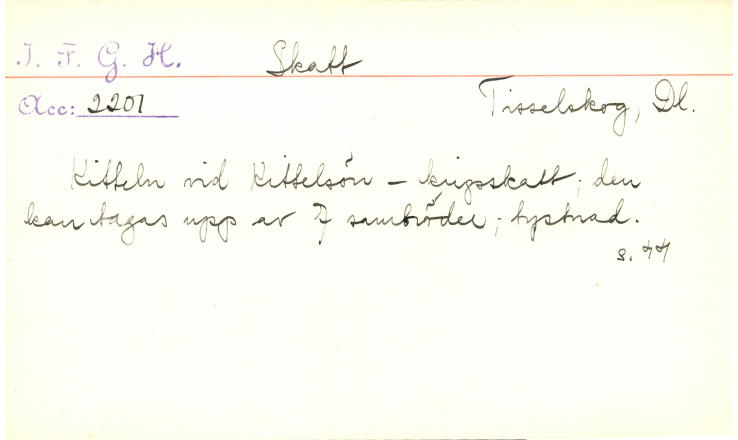 I. F. G. H. Skatt
Acc: 2201 Tisselskog, Dl.
Kitteln vid Kittelsön – krigsskatt; den
kan tagas upp av 7 sambröder; tystnad.
s. 44